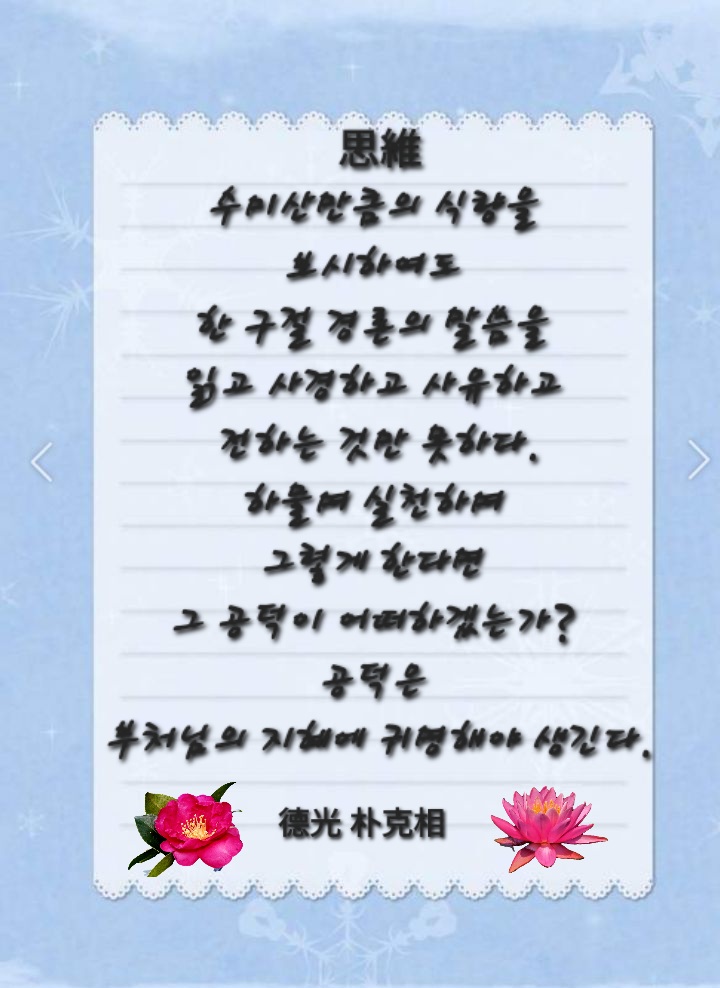 思維
수미산만큼의 식량을
보시하여도
한 구절 경론의 말씀을
읽고 사경하고 사유하고
전하는 것만 못하다.
하물며 실천하며
그렇게 한다면
그 공덕이 어떠하겠는가?
공덕은
부처님의 지혜에 귀명해야 생긴다.
德光 朴克相